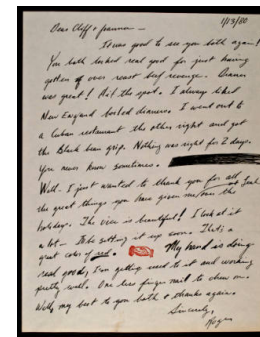 1/13/80
Dear Cliff & Joannan —
It was good to see you both again!
You both looked real good for just having
gotten of over roast beef revenge. Dinner
was great! Hit the spot. I always liked
New England boiled dinners. I went out to
a Cuban restaurant the other night and got
the Black bean grip. Nothing was right for 2 days.
You never know sometimes.
Well – I just wanted to thank you for all
the great things you have given me over the
holidays. The vice is beautiful! I look at it
a lot – I'll be setting it up soon. That's a
great color of red. My hand is doing
real good, I'm getting used to it and working
pretty well. One less finger nail to chew on.
Well, my best to you both & thanks again.
Sincerely,
Roger